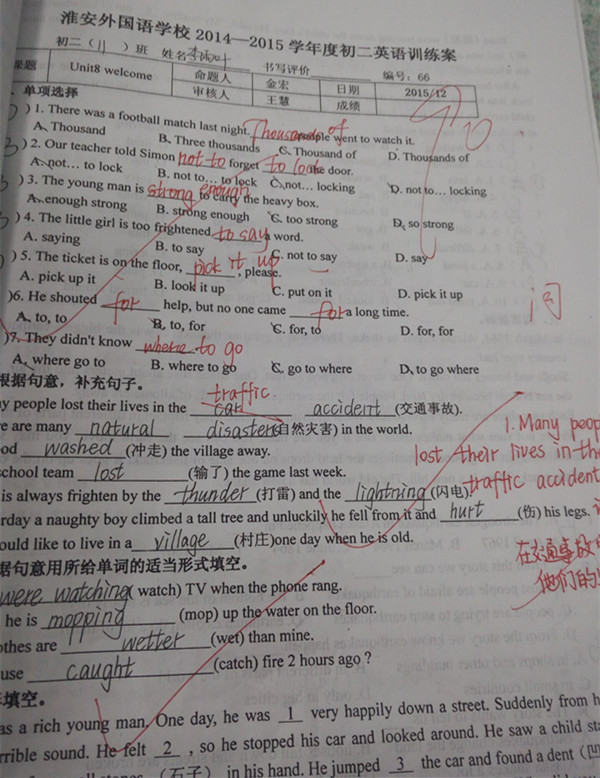 淮安外国语学校 2014—2015 学年度初二英语训练案
初二（11）班 姓名 书写评价 编号：66
课题 Unit8 welcome 命题人 金宏 日期 2015/12
审核人 王慧 成绩
单项选择
) 1. There was a football match last night. Thousands of people went to watch it.
A. Thousand B. Three thousands C. Thousand of D. Thousands of
) 2. Our teacher told Simon not to forget to lock the door.
A. not… to lock B. not to… to lock C. not… locking D. not to… locking
) 3. The young man is strong enough to carry the heavy box.
A. enough strong B. strong enough C. too strong D. so strong
) 4. The little girl is too frightened to say a word.
A. saying B. to say C. not to say D. say
) 5. The ticket is on the floor, pick it up, please.
A. pick up it B. look it up C. put on it D. pick it up
)6. He shouted for help, but no one came for a long time.
A. to, to B. to, for C. for, to D. for, for
)7. They didn't know where to go
A. where go to B. where to go C. go to where D. to go where
根据句意，补充句子。
traffic
y people lost their lives in the car accident (交通事故).
re are many natural disasters(自然灾害) in the world.
ood washed (冲走) the village away.
school team lost (输了) the game last week.
is always frighten by the thunder (打雷) and the lightning (闪电).
rday a naughty boy climbed a tall tree and unluckily he fell from it and hurt (伤) his legs.
ould like to live in a village (村庄)one day when he is old.
1. Many peop
lost their lives in the
traffic accident
问
10
在交通事故中
他们的
据句意用所给单词的适当形式填空。
were watching( watch) TV when the phone rang.
he is mopping (mop) up the water on the floor.
othes are wetter (wet) than mine.
use caught (catch) fire 2 hours ago ?
填空。
as a rich young man. One day, he was 1 very happily down a street. Suddenly from h
rrible sound. He felt 2 , so he stopped his car and looked around. He saw a child sta
(石子) in his hand. He jumped 3 the car and found a dent (